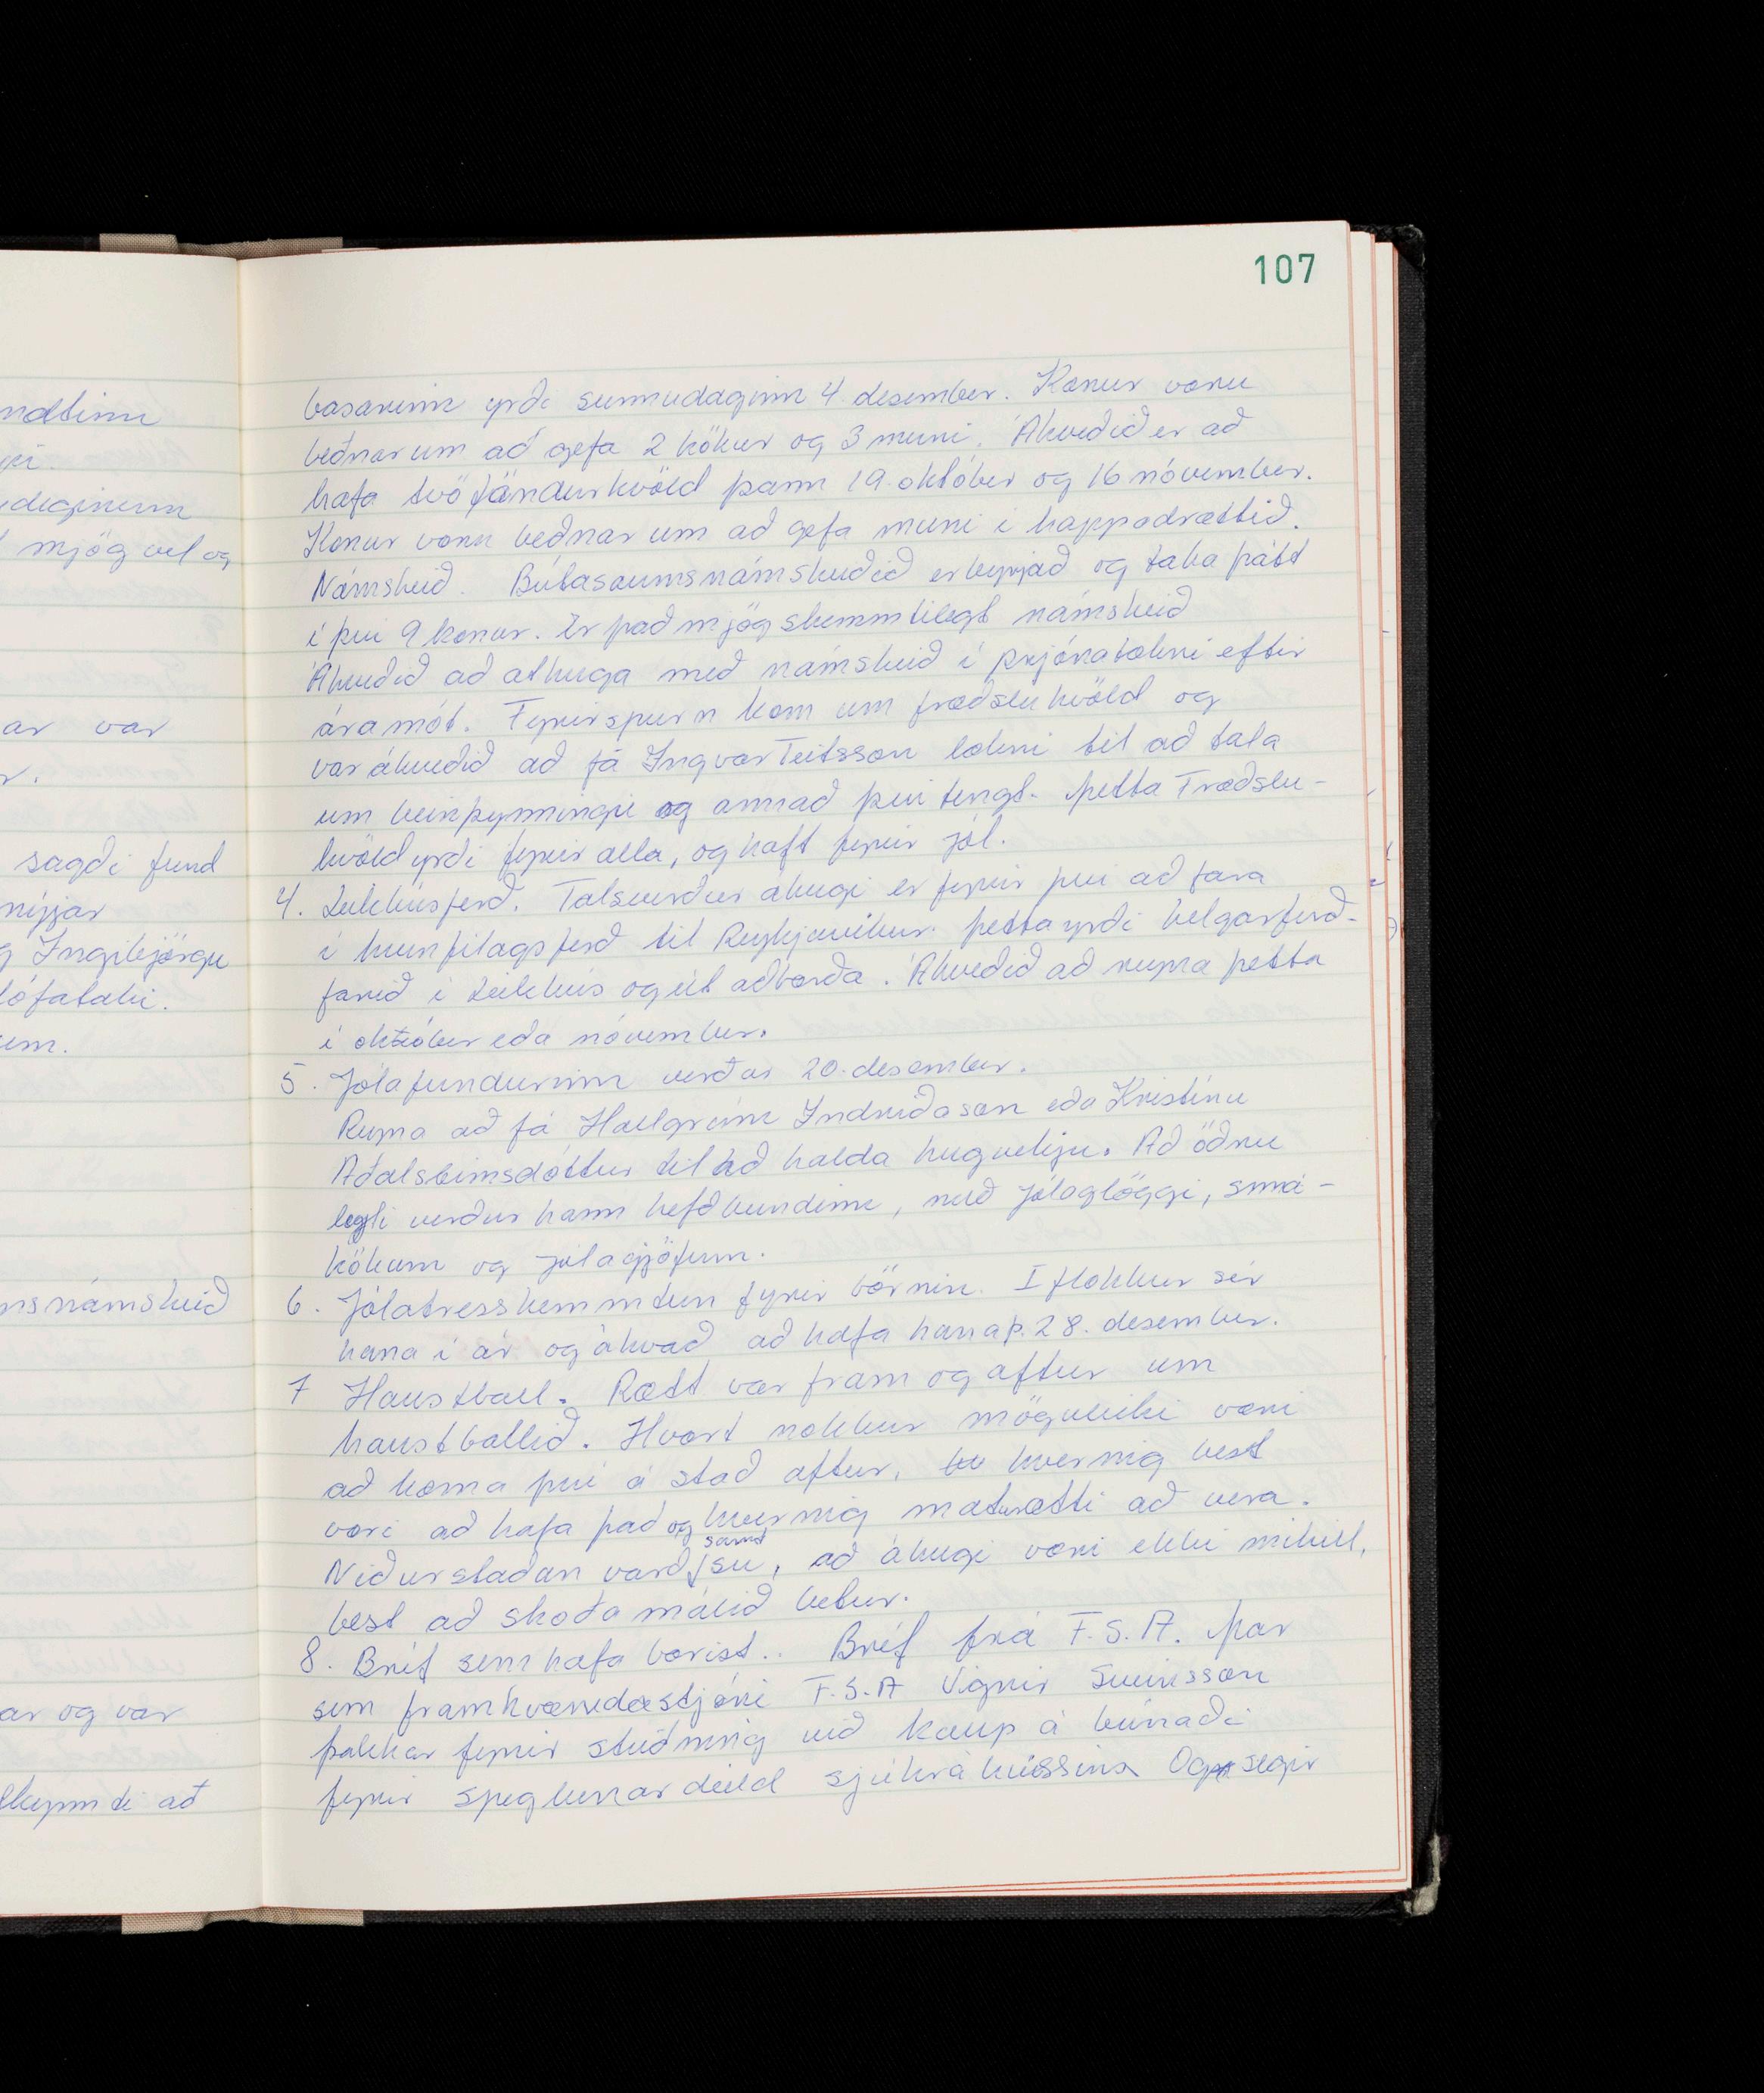 107
basarinn yrði sunnudaginn 4. desember. Konur voru
beðnar um að gefa 2 kökur og 3 muni. Ákveðið er að
hafa tvö föndurkvöld þann 19. október og 16 nóvember.
Konur voru beðnar um að gefa muni í happadrættið.
Námskeið. Bútasaumsnámskeiðið er byrjað og taka þátt
í því 9 konur. Er það mjög skemmtilegt námskeið
Ákveðið að athuga með námskeið í prjónatækni eftir
áramót. Fyrirspurn kom um fræðslukvöld og
var ákveðið að fá Ingvar Teitsson lækni til að tala
um beinþynningu og annað því tengt. Þetta Fræðslu-
kvöld yrði fyrir alla, og haft fyrir jól.
4. Leikhúsferð. Talsverður áhugi er fyrir því að fara
í kvenfélagsferð til Reykjavíkur. Þetta yrði helgarferð-
farið í Leikhús og út að borða. Ákveðið að reyna þetta
í október eða nóvember.
5. Jólafundurinn verður 20. desember.
Reyna að fá Hallgrím Indriðason eða Kristínu
Aðalsteinsdóttur til að halda hugvekju. Að öðru
leyti verður hann hefðbundinn, með jólaglöggi, smá-
kökum og jólagjöfum.
6. Jólatresskemmtun fyrir börnin. I flokkur sér
hana í ár og ákvað að hafa hana þ. 28. desember.
7 Haustball. Rætt var fram og aftur um
haustballið. Hvort nokkur möguleiki væri
að koma því á stað aftur, hvernig best
væri að hafa það og hvernig matur ætti að vera.
Niðurstaðan varð samt sú, að áhugi væri ekki mikill,
best að skoða málið betur.
8. Bréf sem hafa borist.. Bréf frá F.S.A. Þar
sem framkvæmdastjóri F.S.A Vignir Sveinsson
þakkar fyrir stuðning við kaup á búnaði
fyrir speglunardeild sjúkrahússins Og segir
ndtinn
deginum
mjög vel og
ar var
r.
sagði fund
nýjar
g Ingibjörgu
lófataki.
um.
nsnámskeið
ar og var
lkynnti að